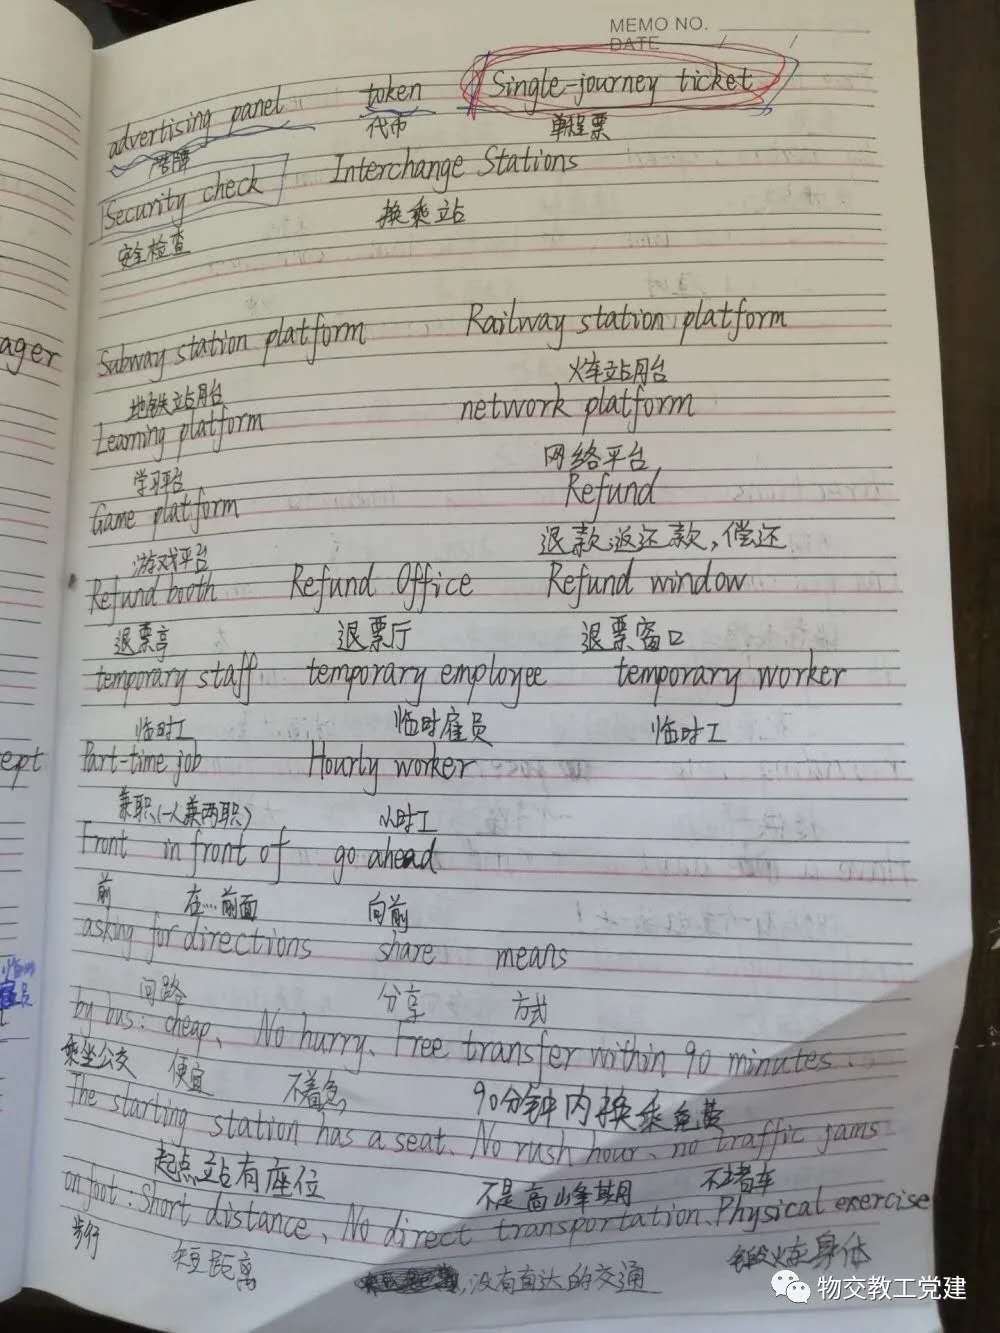 MEMO NO.
DATE / /
advertising panel token Single-journey ticket
代币 单程票
Security check Interchange Stations
安全检查 换乘站
Subway station platform Railway station platform
地铁站月台 火车站月台
ager
Learning platform network platform
学习平台 网络平台
Game platform Refund
游戏平台 退款,返还款,偿还
Refund booth Refund Office Refund window
退票亭 退票厅 退票窗口
temporary staff temporary employee temporary worker
临时工 临时雇员 临时工
ept
Part-time job Hourly worker
兼职(一人兼两职) 小时工
Front in front of go ahead
前 在…前面 向前
asking for directions share means
问路 分享 方式
by bus: cheap、No hurry、Free transfer within 90 minutes.
乘坐公交 便宜 不着急, 90分钟内换乘免费
The starting station has a seat、No rush hour、no traffic jams
起点站有座位 不是高峰期 不堵车
on foot: Short distance、No direct transportation、Physical exercise
步行 短距离 ,没有直达的交通 锻炼身体
物交教工党建